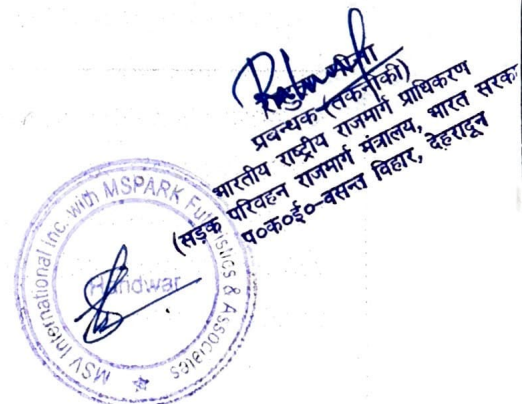 मीना
प्रबन्धक (तकनीकी)
भारतीय राष्ट्रीय राजमार्ग प्राधिकरण
(सड़क परिवहन राजमार्ग मंत्रालय, भारत सरका
प०क०ई०-वसन्त विहार, देहरादून
MSV International Inc. with MSPARK Futuristics & Associates
Haridwar